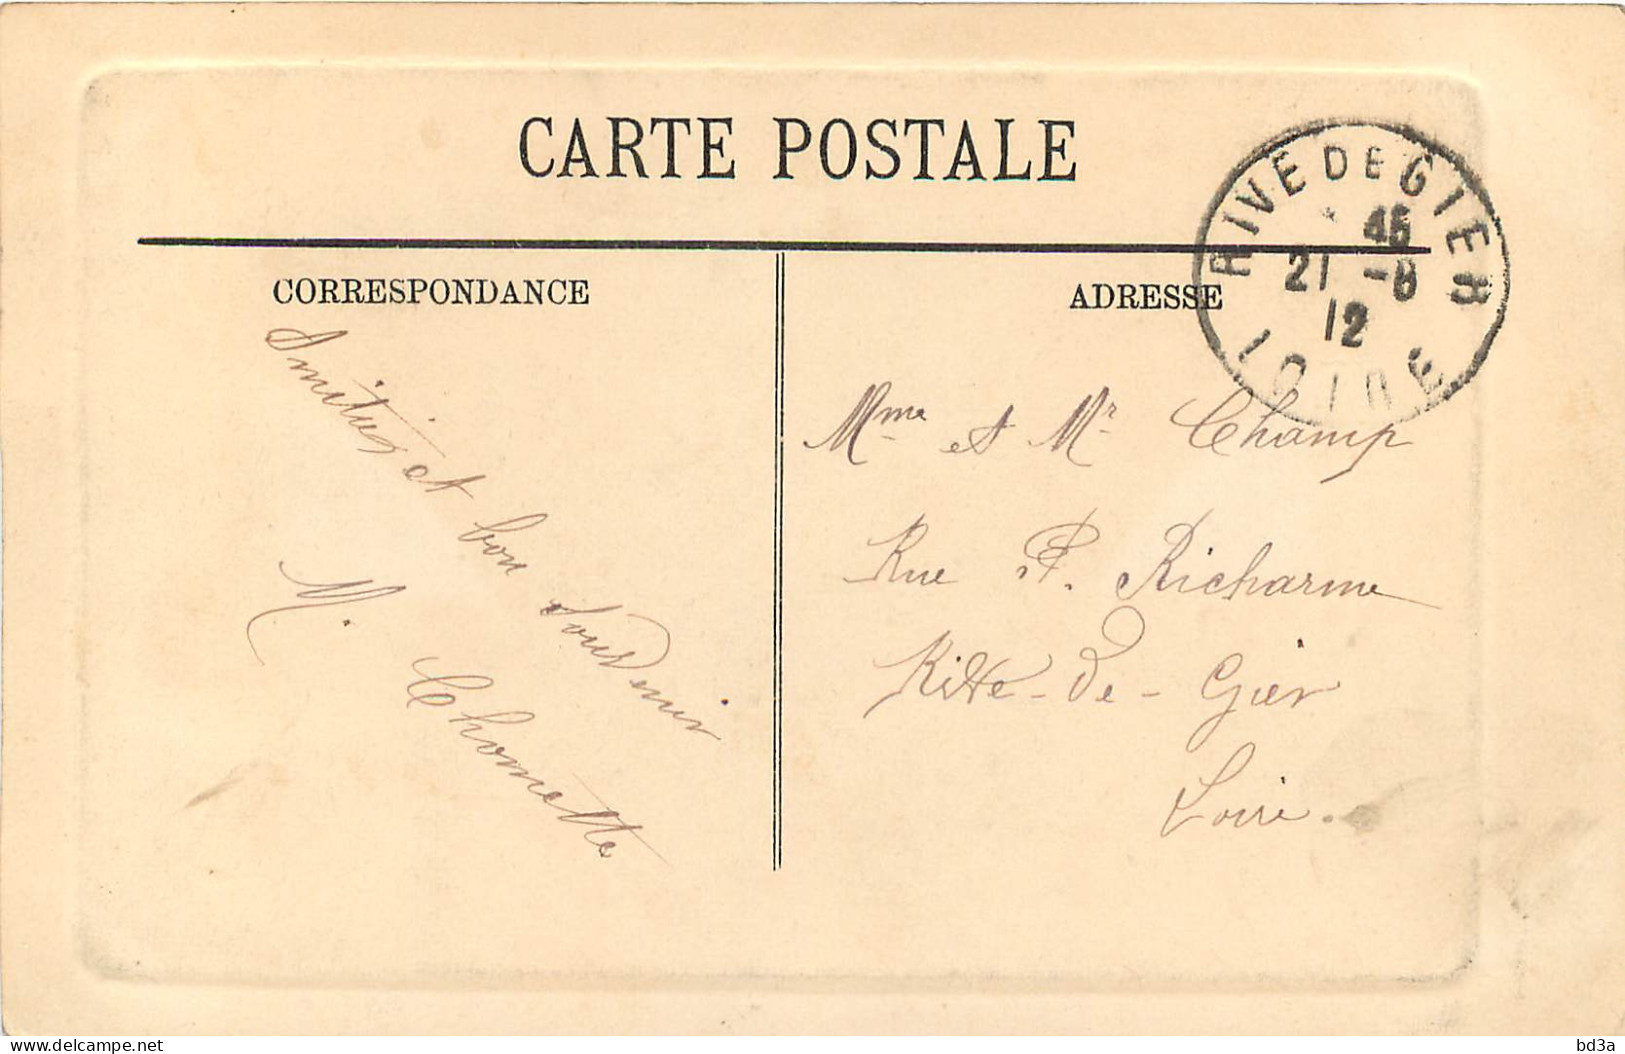 CARTE POSTALE
RIVE DE GIER
45
21 -8
12
LOIRE
CORRESPONDANCE
ADRESSE
Amitiés et bon souvenir
M. Chomette
Mme et Mr Champ
Rue P. Richarme
Rive-de-Gier
Loire.
delcampe.net
bd3a